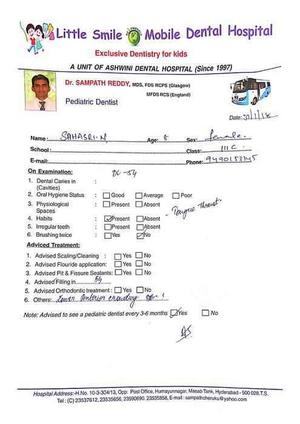 Little Smile Mobile Dental Hospital
Exclusive Dentistry for kids
A UNIT OF ASHWINI DENTAL HOSPITAL (Since 1997)
Dr. SAMPATH REDDY, MDS, FDS RCPS (Glasgow)
MFDS RCS (England)
Pediatric Dentist
Date:
Name: SAHASRI.N Age: 8 Sex: female
School: Class: III C
E-mail: Phone:
On Examination:
1. Dental Caries in (Cavities) : DC - 54
2. Oral Hygiene Status : Good Average Poor
3. Physiological Spaces : Present Absent
4. Habits : Present Absent - Tongue thrust
5. Irregular teeth : Present Absent
6. Brushing twice : Yes No
Adviced Treatment:
1. Advised Scaling/Cleaning : Yes No
2. Advised Flouride application: Yes No
3. Advised Pit & Fissure Sealants: Yes No
4. Advised Filling in 54
5. Advised Orthodontic treatment : Yes No
6. Others: Lower Anterior crowding
Note: Advised to see a pediatric dentist every 3-6 months Yes No
Hospital Address:-H.No. 10-3-304/13, Opp. Post Office, Humayunnagar, Masab Tank, Hyderabad - 500 028.T.S.
Tel: (C) 23537612, 23535656, 23590690, 23535858, E-mail: sampathcheruku@yahoo.com